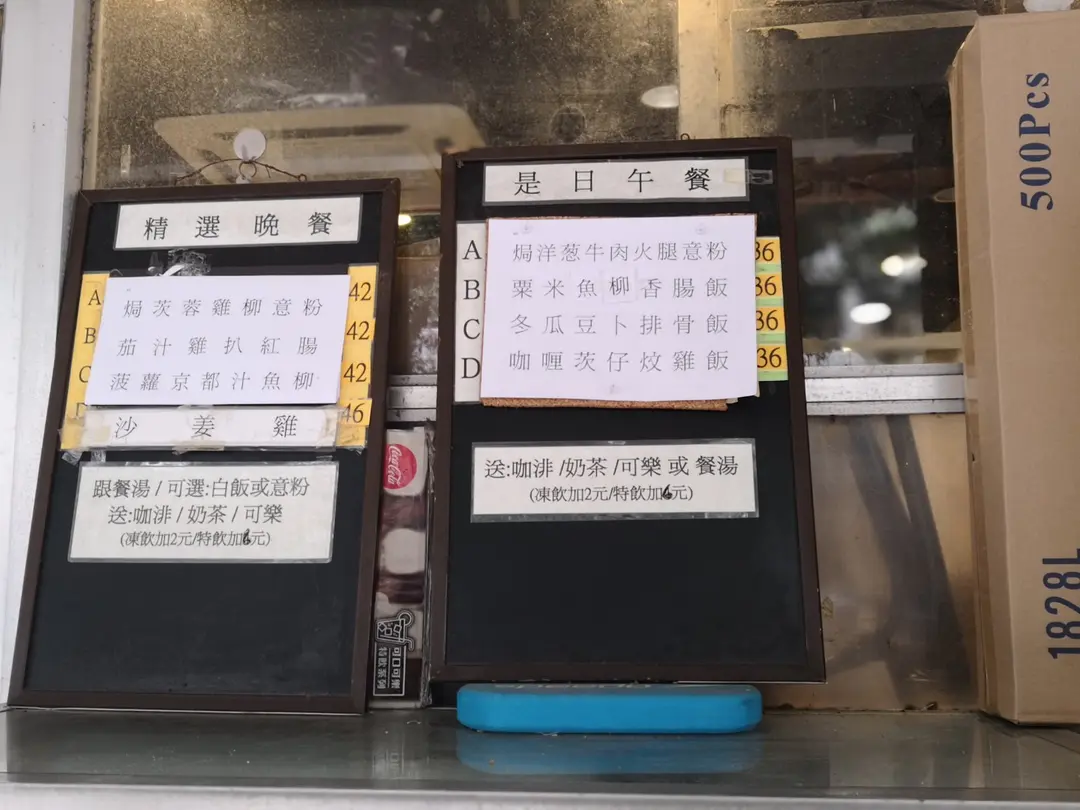 精選晚餐
A 焗茨蓉雞柳意粉 42
B 茄汁雞扒紅腸 42
C 菠蘿京都汁魚柳 42
D 沙姜雞 46
跟餐湯/可選:白飯或意粉
送:咖啡/奶茶/可樂
(凍飲加2元/特飲加6元)
Coca-Cola
可口可樂
特飲系列
是日午餐
A 焗洋葱牛肉火腿意粉 36
B 粟米魚柳香腸飯 36
C 冬瓜豆卜排骨飯 36
D 咖喱茨仔炆雞飯 36
送:咖啡/奶茶/可樂或餐湯
(凍飲加2元/特飲加6元)
500Pcs
1828L